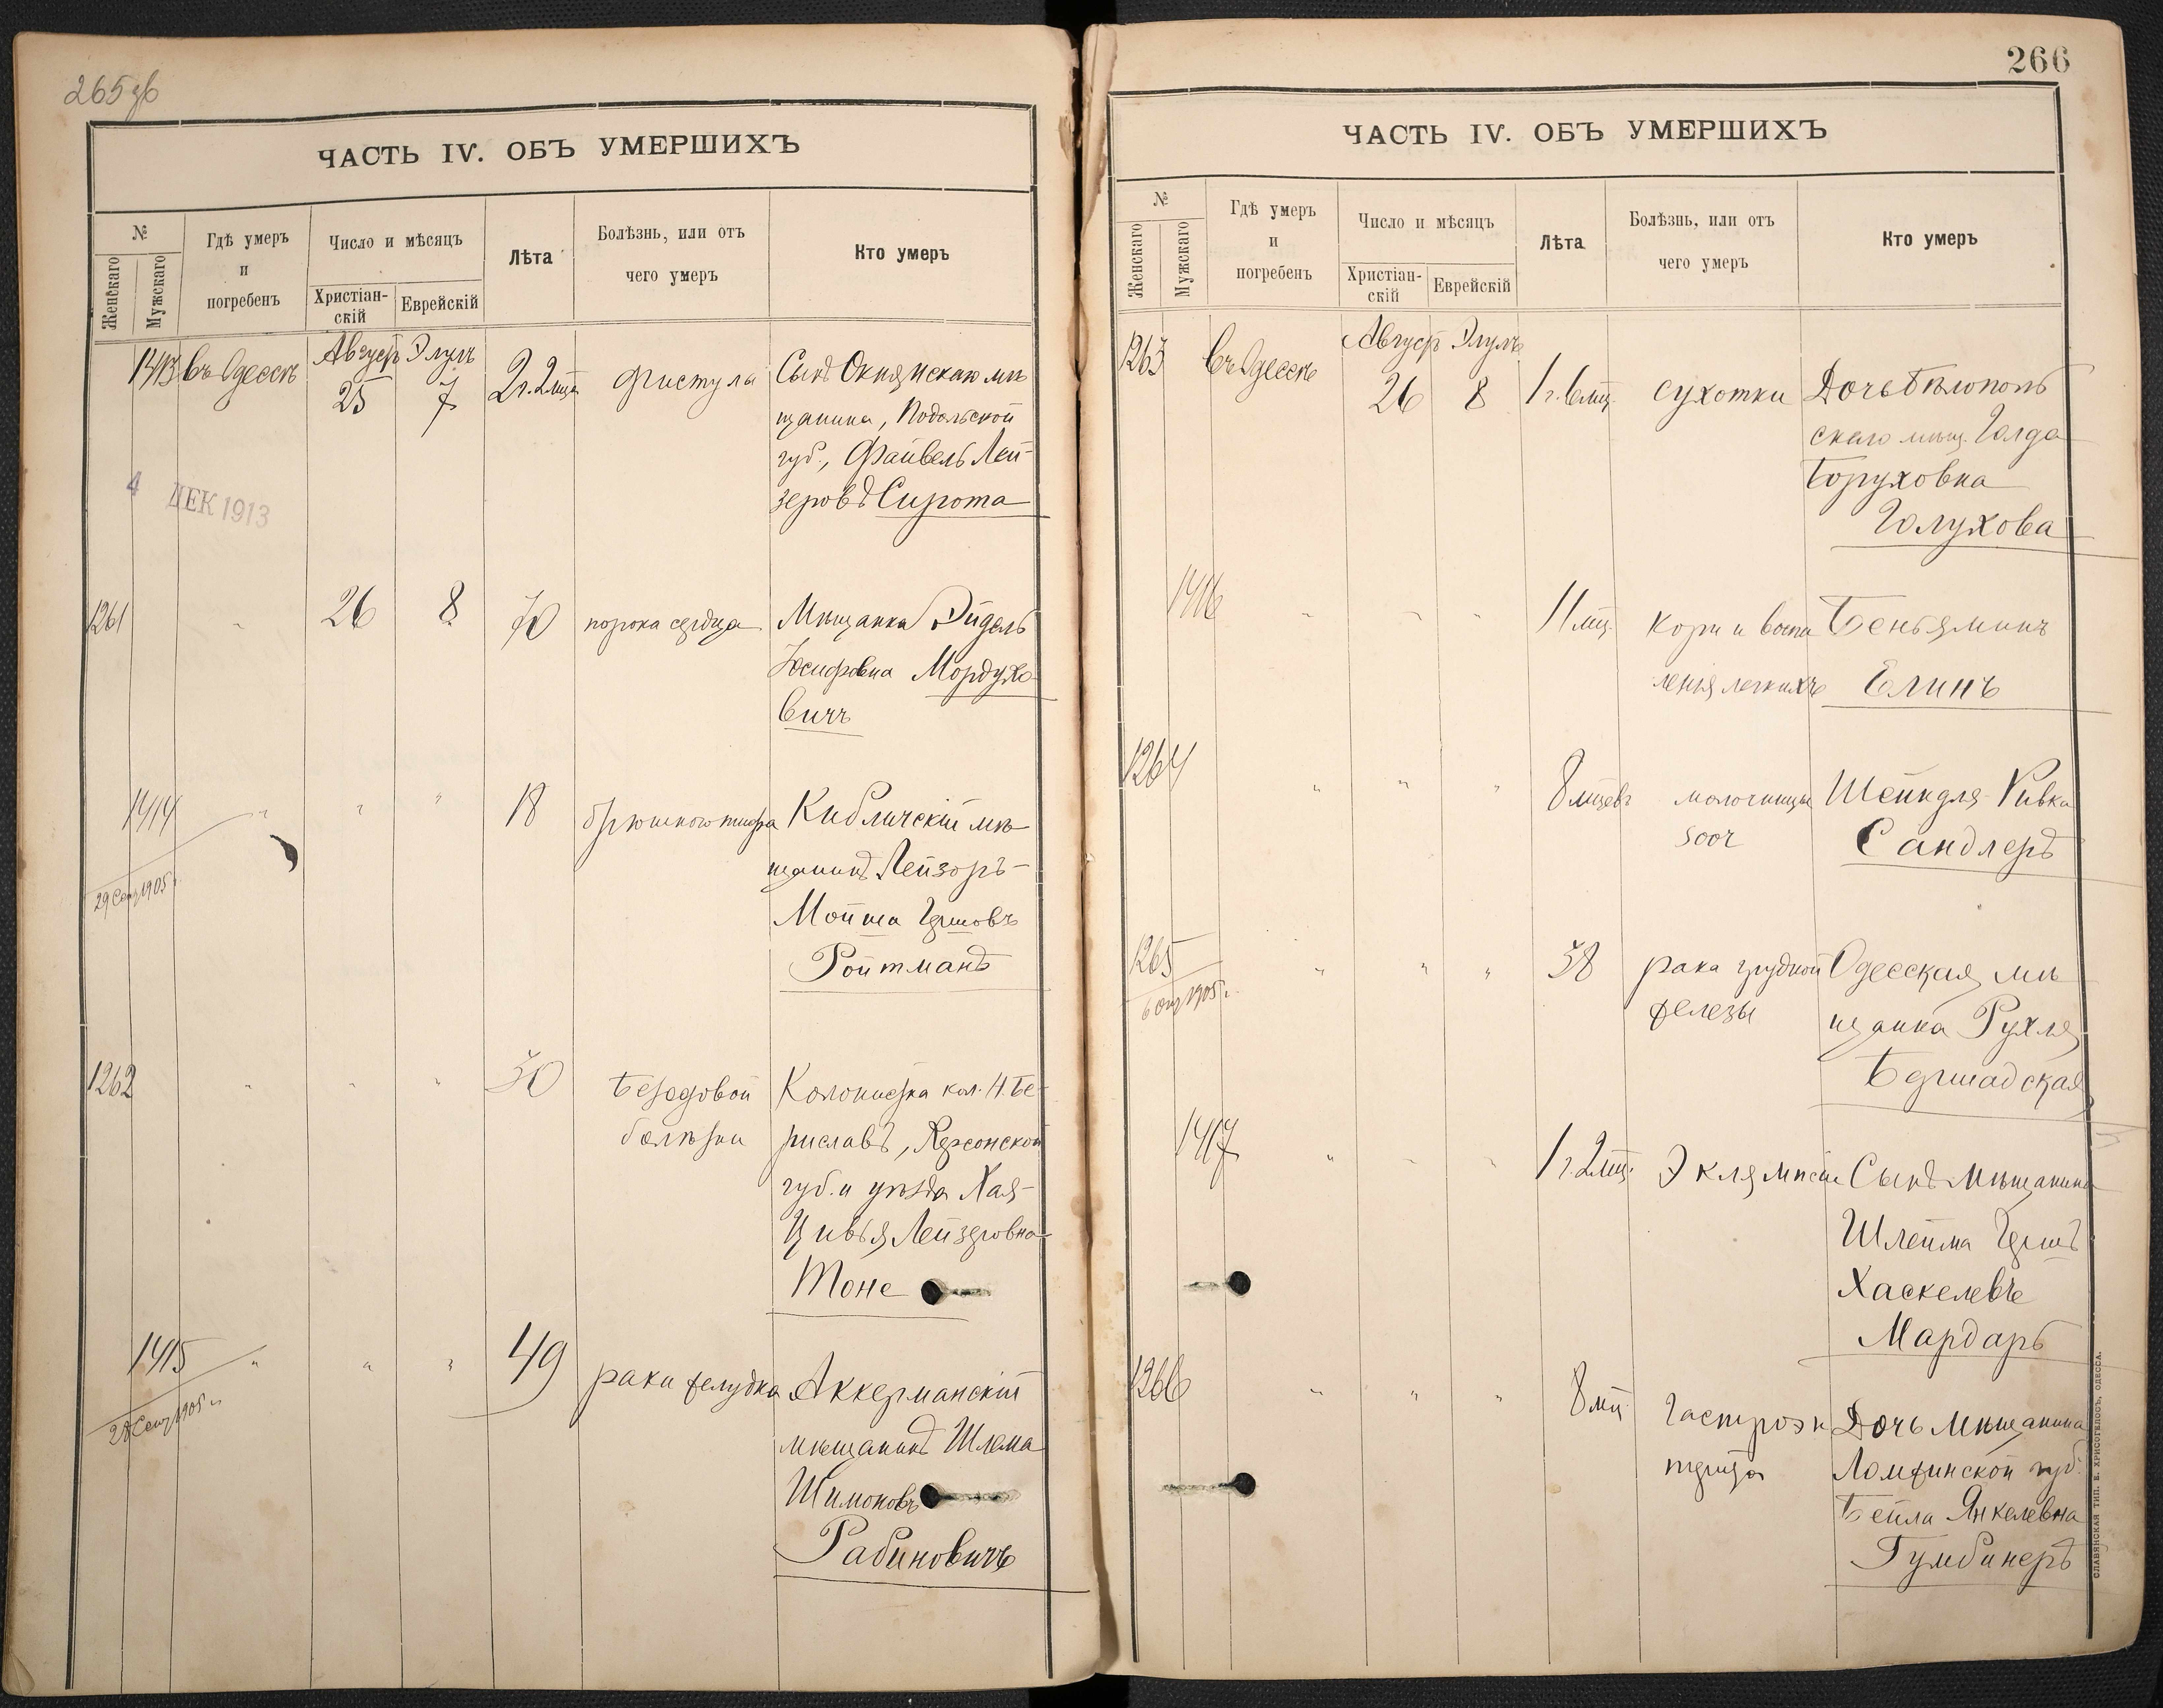 265 об
ЧАСТЬ IV. ОБЪ УМЕРШИХЪ
№
Женскаго
Мужскаго
Гдѣ умеръ
и
погребенъ
Число и мѣсяцъ
Христіан-
скій
Еврейскій
Лѣта
Болѣзнь, или отъ
чего умеръ
Кто умеръ
1413 въ Одессѣ Август 25 Элулъ 7 2 г. 2 мца фистула Сынъ Окнянскаго мѣ-
щанина, Подольской
губ., Файвель Лей-
зеровъ Сирота
4 ДЕК 1913
1261 " 26 8 70 порока сердца Мѣщанка Эйдель
Іосифовна Мордухо-
вичъ
1414 " " " 18 брюшного тифа Кибличскій мѣ-
щанинъ Лейзоръ-
Мойша Гершовъ
Ройтманъ
29 Сент 1905 г.
1262 " " " 30 Базедовой Колонистка кол. Н. Бе-
болѣзни риславъ, Херсонской
губ. и уѣзда Хая-
Цивья Лейзеровна
Тоне
1415 " " " 49 рака желудка Аккерманскій
мѣщанинъ Шлема
Шимоновъ
Рабиновичъ
28 Сент 1905 г.
266
ЧАСТЬ IV. ОБЪ УМЕРШИХЪ
№
Женскаго
Мужскаго
Гдѣ умеръ
и
погребенъ
Число и мѣсяцъ
Христіан-
скій
Еврейскій
Лѣта
Болѣзнь, или отъ
чего умеръ
Кто умеръ
1263 въ Одессѣ Август 26 Элулъ 8 1 г. 6 мц. сухотки Дочь Бѣлополь
скаго мѣщ. Голда
Боруховна
Голухова
1416 " " " 11 мц. Кори и воспа Беньяминъ
ленія легкихъ Елинъ
1264 " " " 8 мцевъ молочницы Шейндля-Ривка
soor Сандлеръ
1265 " " " 38 рака грудной Одесская мѣ
железы щанка Рухля
Бершадская
6 Окт 1905 г.
1417 " " " 1 г. 2 мц. Эклямпсіи Сынъ мѣщанина
Шлейма Гершъ
Хаскелевъ
Мардарь
1266 " " " 8 мц. Гастроэн Дочь мѣщанина
терита Ломжинской губ.
Бейла Янкелевна
Гумбинеръ
СЛАВЯНСКАЯ ТИП. Е. ХРИСОГЕЛОСЪ, ОДЕССА.